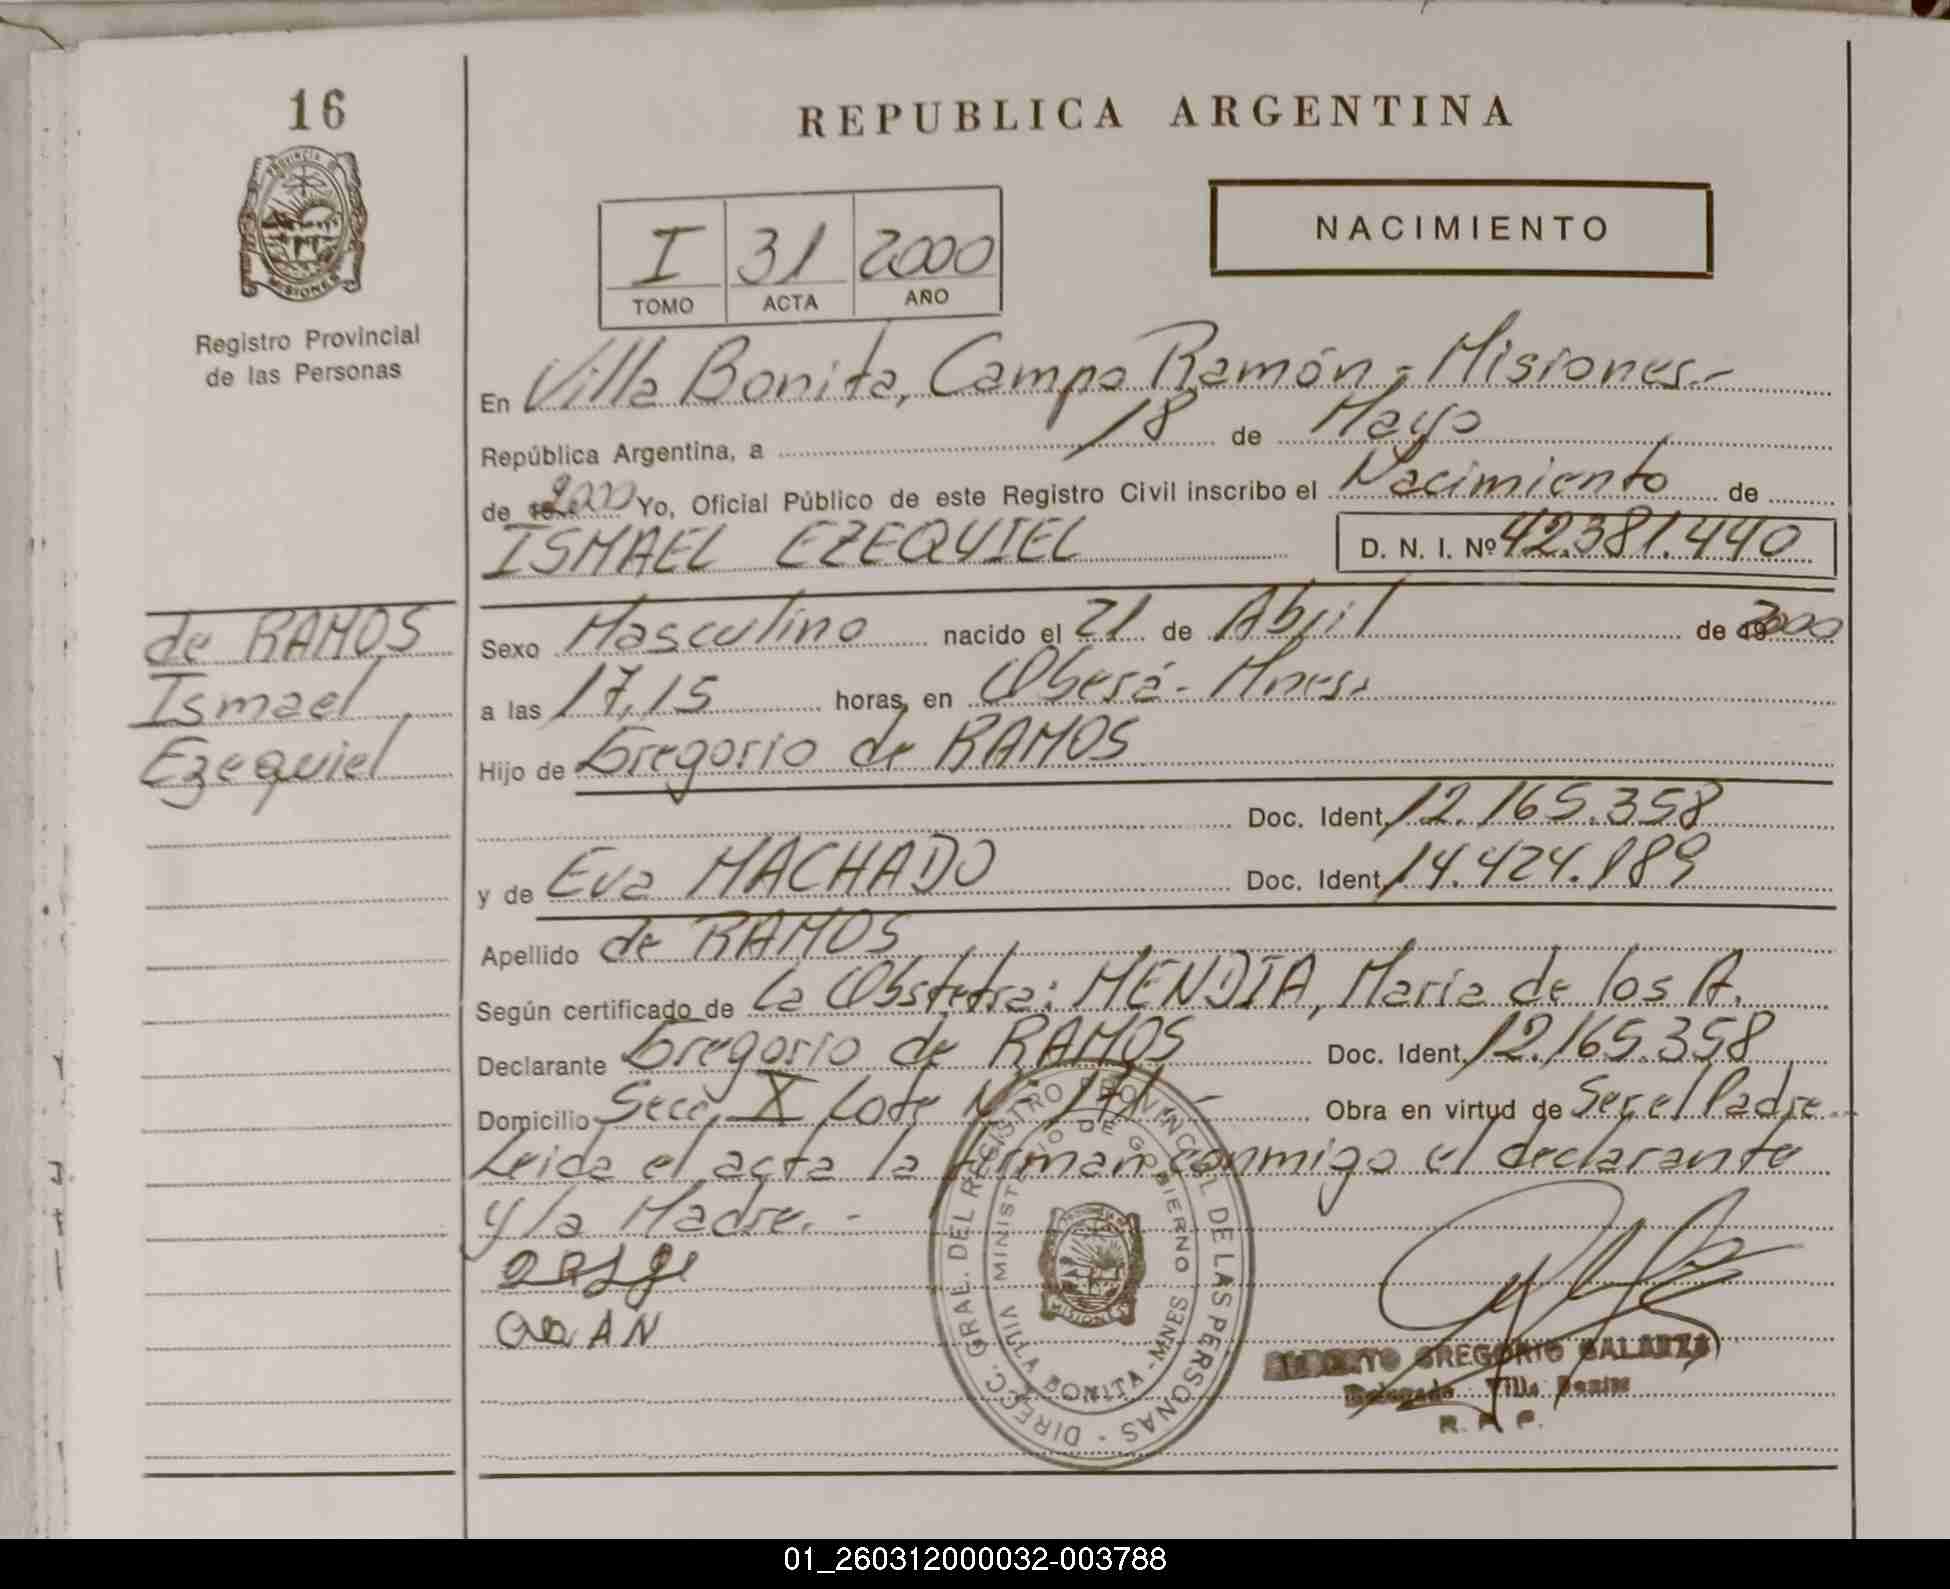 16
REPUBLICA ARGENTINA
NACIMIENTO
I 31 2000
TOMO ACTA AÑO
Registro Provincial
de las Personas
En Villa Bonita, Campo Ramón - Misiones.-
República Argentina, a 18 de Mayo
de 2000 Yo, Oficial Público de este Registro Civil inscribo el Nacimiento de
ISMAEL EZEQUIEL D. N. I. Nº 42.381.440
de RAMOS
Ismael
Ezequiel
Sexo Masculino nacido el 21 de Abril de 2000
a las 17,15 horas, en Oberá - Mnes.
Hijo de Gregorio de RAMOS
Doc. Ident. 12.165.358
y de Eva MACHADO Doc. Ident. 14.424.189
Apellido de RAMOS
Según certificado de La Obstetra: MENDIA, María de los A.
Declarante Gregorio de RAMOS Doc. Ident. 12.165.358
Domicilio Secc. X Lote Nº 171.- Obra en virtud de Ser el Padre.-
Leida el acta la firman conmigo el declarante
y la Madre.-
DIRECC. GRAL. DEL REGISTRO PROVINCIAL DE LAS PERSONAS
MINISTERIO DE GOBIERNO
VILLA BONITA - MNES
PROVINCIA DE MISIONES
GREGORIO GALARZA
Delegado Villa Bonita
R. P. P.
01_260312000032-003788